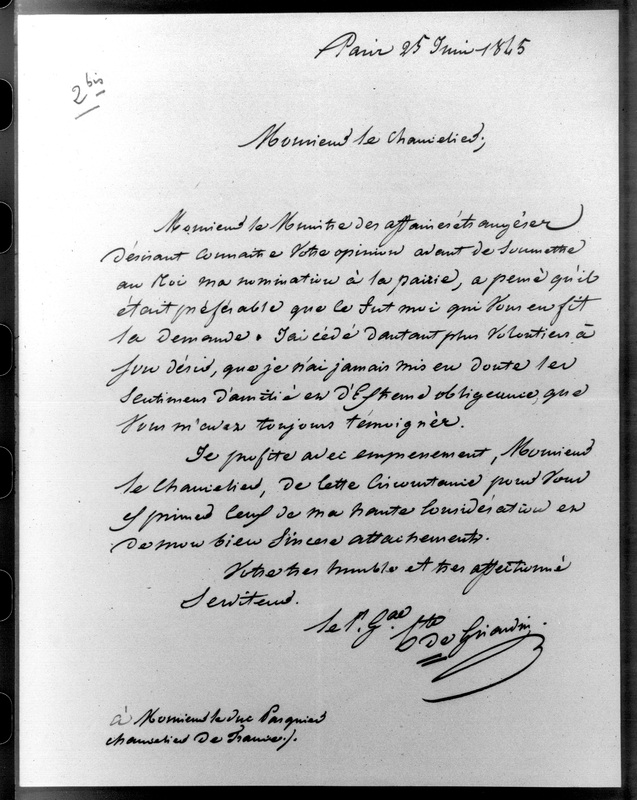 Paris 25 Juin 1845
2 bis
Monsieur le Chancelier,
Monsieur le Ministre des affaires étrangères
désirant connaître votre opinion avant de soumettre
au Roi ma nomination à la pairie, a pensé qu'il
était préférable que ce fut moi qui vous en fit
la demande. J'ai cédé d'autant plus volontiers à
son désir, que je n'ai jamais mis en doute les
Sentimens d'amitié et d'Estreme obligeance, que
Vous m'avez toujours témoignés.
Je profite avec empressement, Monsieur
le Chancelier, de cette Circonstance pour Vous
Exprimer Ceux de ma haute Considération et
de mon bien Sincère attachement.
Votre tres humble et tres affectionné
Serviteur.
le Lt. Gal Cte de Girardin
à Monsieur le duc Pasquier
chancelier de France.